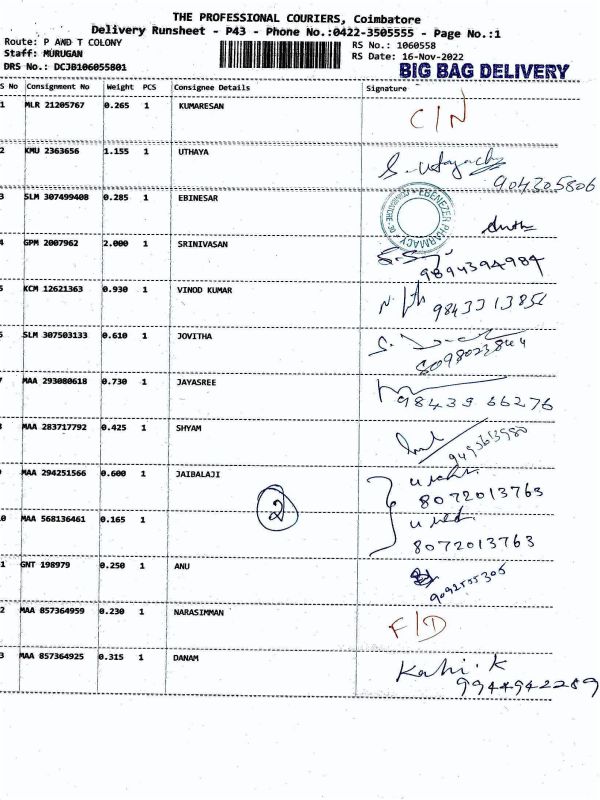 THE PROFESSIONAL COURIERS, Coimbatore
Delivery Runsheet - P43 - Phone No.:0422-3505555 - Page No.:1
Route: P AND T COLONY
RS No.: 1060558
Staff: MURUGAN
RS Date: 16-Nov-2022
DRS No.: DCJB106055801
BIG BAG DELIVERY
S No Consignment No Weight PCS Consignee Details Signature
1 MLR 21205767 0.265 1 KUMARESAN C/N
2 KMU 2363656 1.155 1 UTHAYA
904305806
3 SLM 307499408 0.285 1 EBINESAR
EBENEZER PHARMACY
4 GPM 2007962 2.000 1 SRINIVASAN
9894394984
5 KCM 12621363 0.930 1 VINOD KUMAR
9843313851
SLM 307503133 0.610 1 JOVITHA
8098023844
MAA 293080618 0.730 1 JAYASREE
98439 66276
MAA 283717792 0.425 1 SHYAM
9493613980
MAA 294251566 0.600 1 JAIBALAJI
8072013763
2
0 MAA 568136461 0.165 1
8072013763
1 GNT 198979 0.250 1 ANU
9092555305
2 MAA 857364959 0.230 1 NARASIMMAN F/D
3 MAA 857364925 0.315 1 DANAM Kathi. K
9944942289